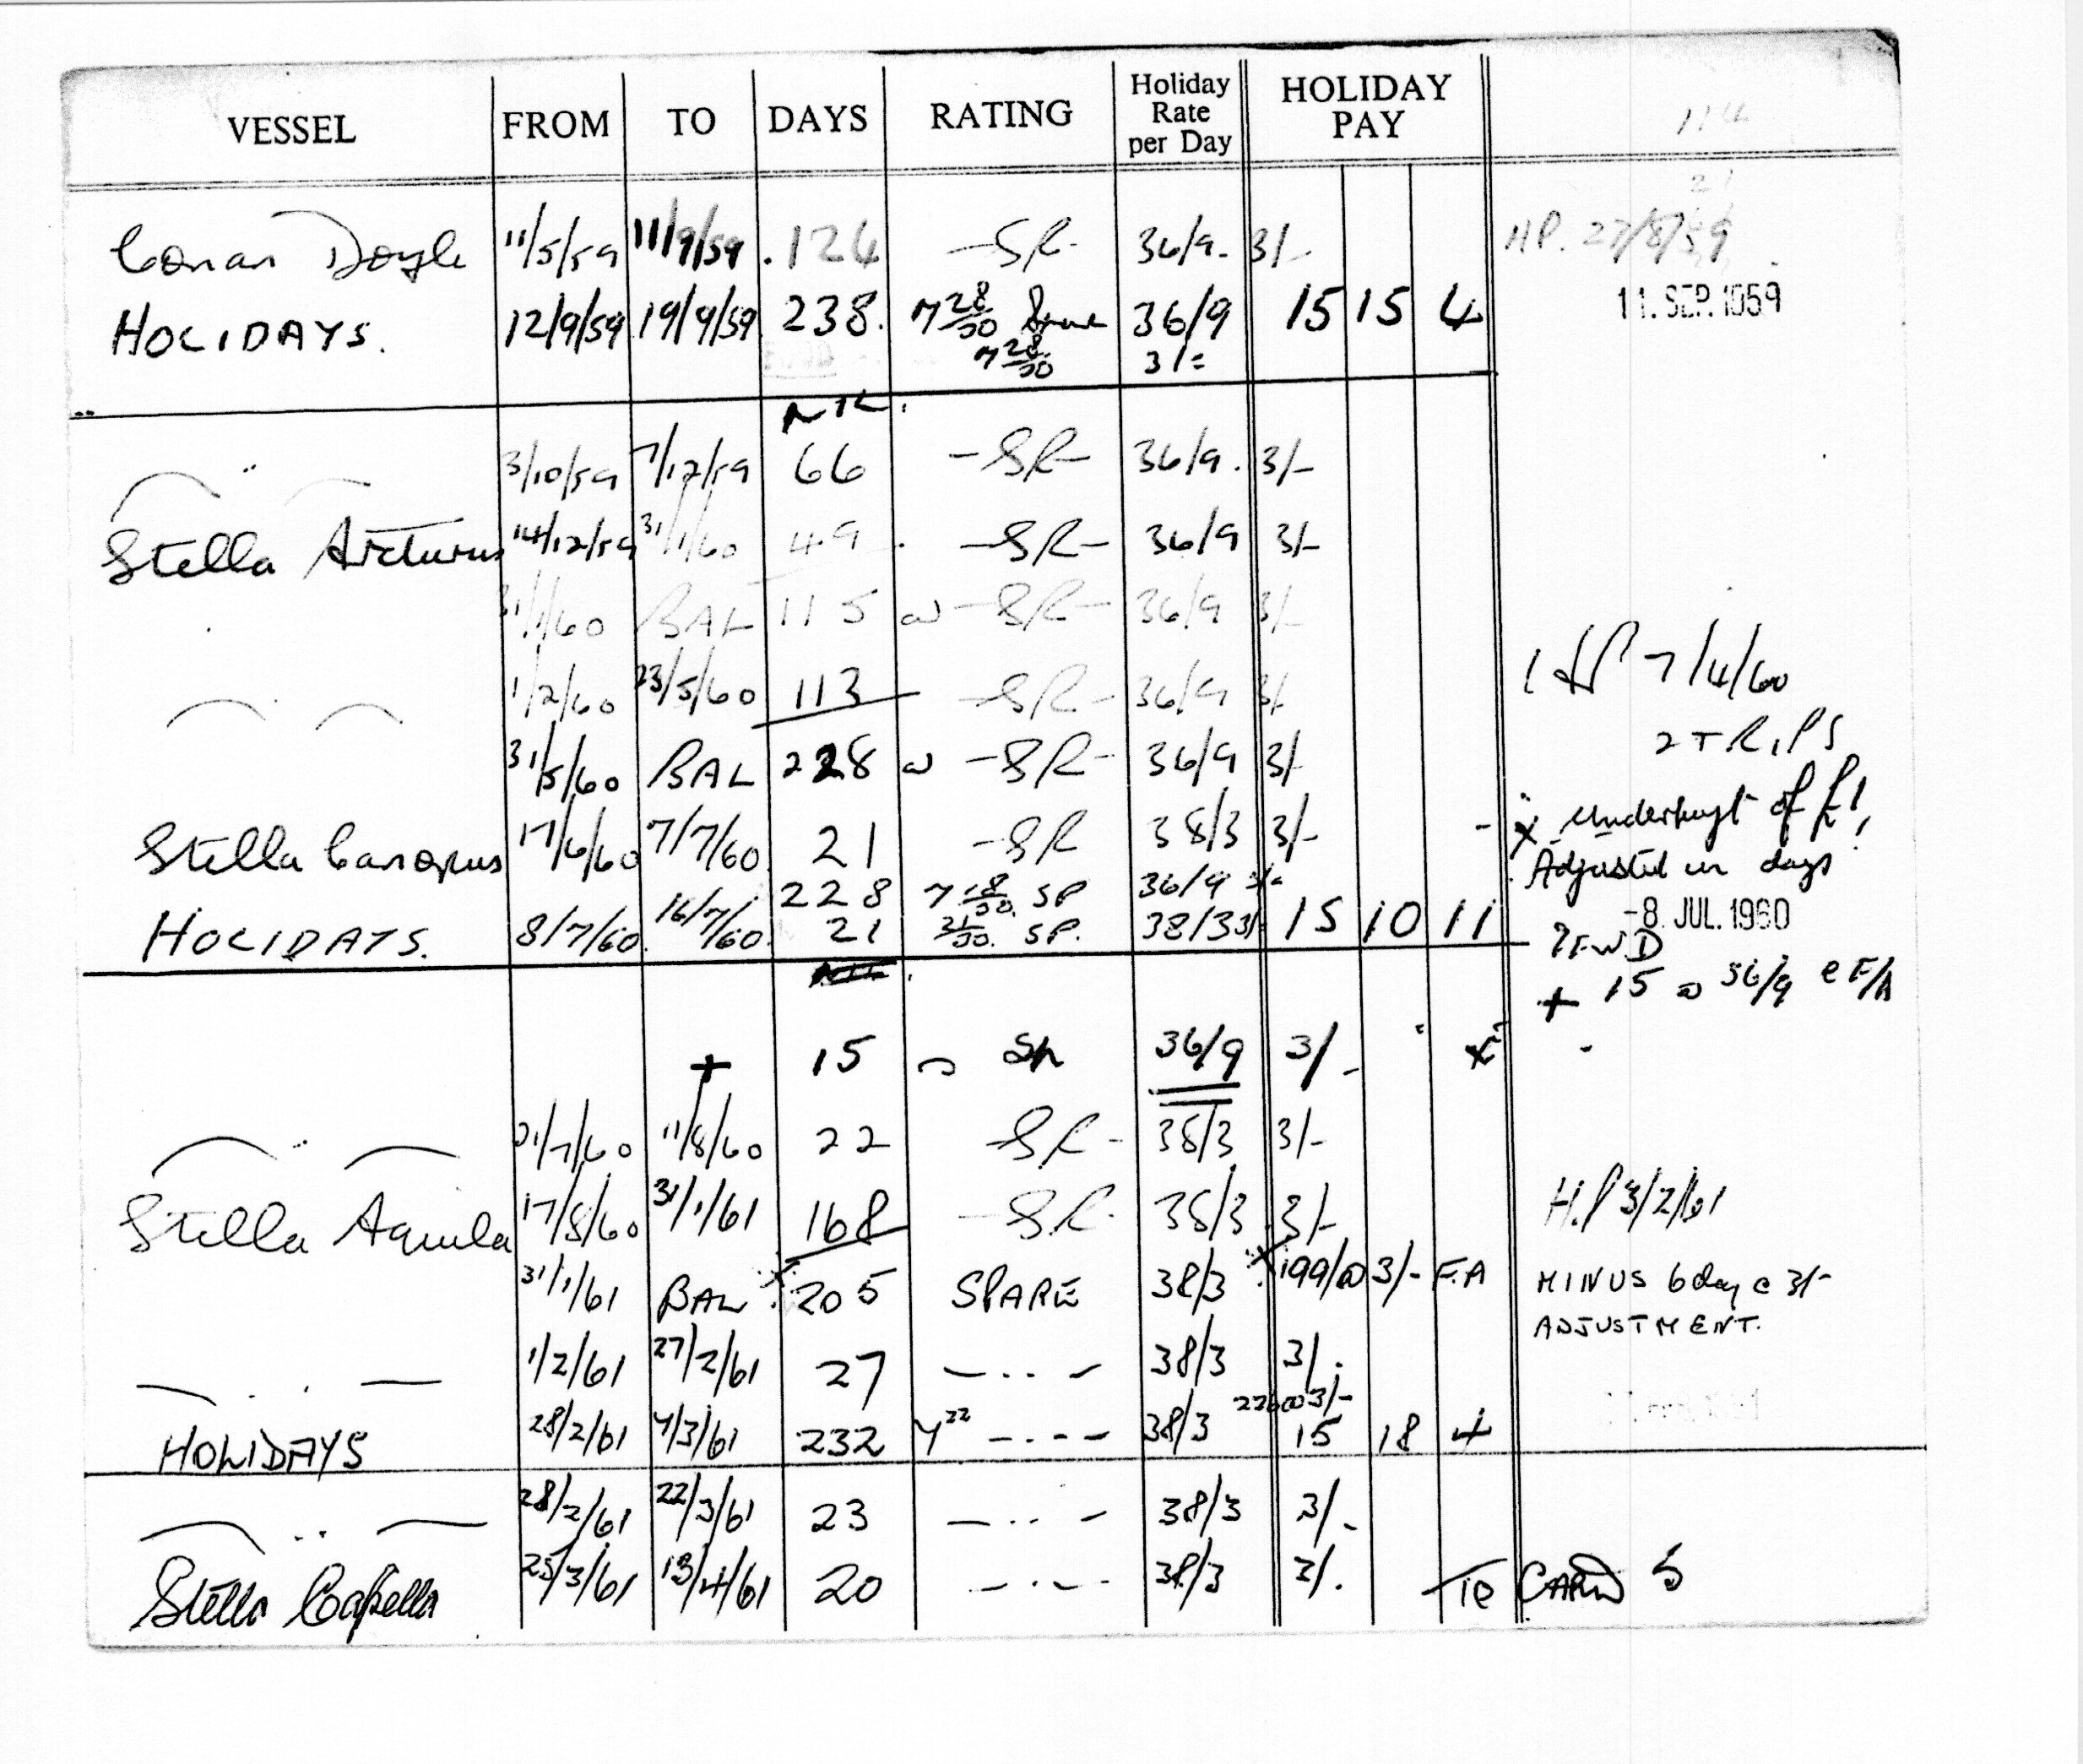 VESSEL FROM TO DAYS RATING Holiday Rate per Day HOLIDAY PAY
Conan Doyle 11/5/59 11/9/59 124 -SR- 36/9 3/- HP. 27/8/59
HOLIDAYS. 12/9/59 19/9/59 238 7 28/30 36/9 15 15 4 11. SEP. 1959
7 28/30 3/=
NIL.
" 3/10/59 7/12/59 66 -SR- 36/9 3/-
Stella Arcturus 14/12/59 31/1/60 49 -SR- 36/9 3/-
31/1/60 BAL 115 @ -SR- 36/9 3/-
1/2/60 23/5/60 113 -SR- 36/9 3/- HP 7/4/60
31/5/60 BAL 228 @ -SR- 36/9 3/- 2 TRIPS
Stella Canopus 17/6/60 7/7/60 21 -SR 38/3 3/- x underpayt of £1,
Adjusted in days
228 7 18/30 SP 36/9 3/-
HOLIDAYS. 8/7/60 16/7/60 21 21/30 SP. 38/3 3/- 15 10 11 -8. JUL. 1960
?FWD
+ 15 @ 36/9 e F/A
+ 15 @ SR 36/9 3/- x
" 21/7/60 11/8/60 22 -SR- 38/3 3/-
Stella Aquila 17/8/60 31/1/61 168 -SR- 38/3 3/- H.P 3/2/61
31/1/61 BAL x 205 SPARE 38/3 x 199/@ 3/- F.A MINUS 6 day e 3/-
ADJUSTMENT.
1/2/61 27/2/61 27 — ·· — 38/3 3/-
226 @ 3/-
HOLIDAYS 28/2/61 7/3/61 232 7 22 — ·· — 38/3 15 18 4
— ·· — 28/2/61 22/3/61 23 — ·· — 38/3 3/-
Stella Capella 25/3/61 13/4/61 20 — ·· — 38/3 3/. To CARD 5